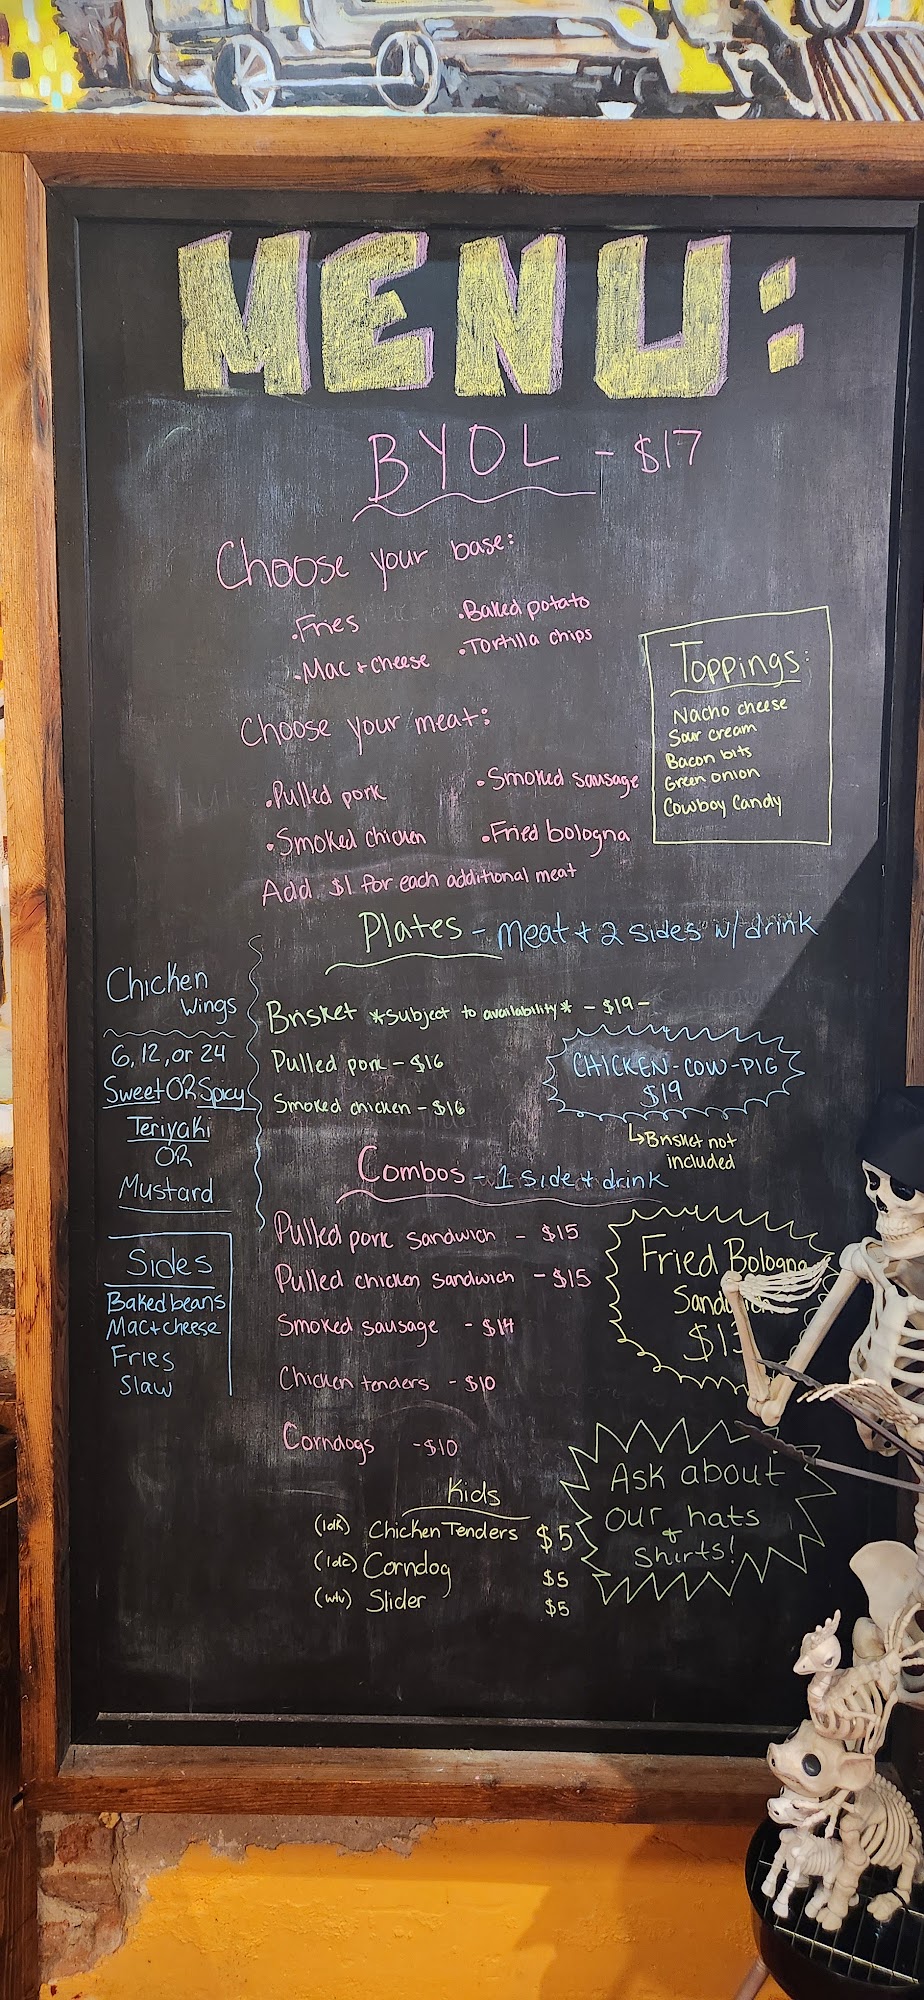 MENU:
BYOL - $17
Choose your base:
•Fries
•Baked potato
•Mac + cheese
•Tortilla chips
Toppings:
Nacho cheese
Sour cream
Bacon bits
Green onion
Cowboy Candy
Choose your meat:
•Pulled pork
•Smoked sausage
•Smoked chicken
•Fried bologna
Add $1 for each additional meat
Plates - meat + 2 sides w/ drink
Brisket *subject to availability* - $19 -
Pulled pork - $16
Smoked chicken - $16
CHICKEN-COW-PIG
$19
↳Brisket not
included
Chicken
Wings
6, 12, or 24
Sweet OR Spicy
Teriyaki
OR
Mustard
Sides
Baked beans
Mac+cheese
Fries
Slaw
Combos - 1 side + drink
Pulled pork sandwich - $15
Pulled chicken sandwich - $15
Smoked sausage - $14
Chicken tenders - $10
Corndogs - $10
Fried Bologna
$13
Kids
(idk) Chicken Tenders $5
(idc) Corndog $5
(wtv) Slider $5
Ask about
our hats
+
Shirts!